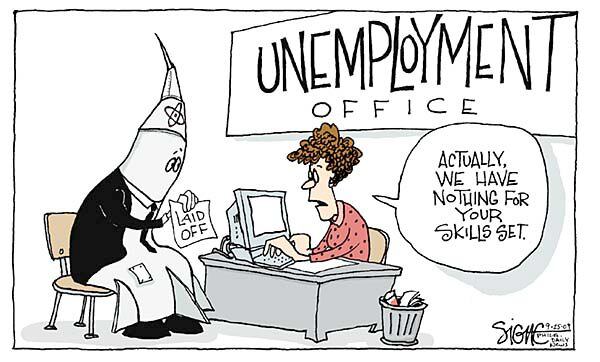 UNEMPLOYMENT
OFFICE
LAID
OFF
ACTUALLY,
WE HAVE
NOTHING FOR
YOUR
SKILLS SET.
SIGNE
9-25-09
PHILA.
DAILY
NEWS